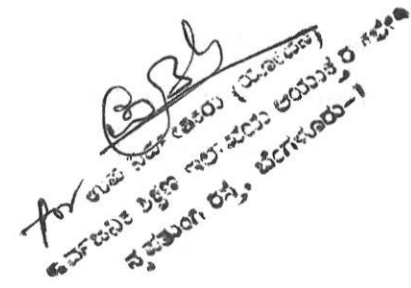 For ಉಪ ನಿರ್ದೇಶಕರು (ಯೋಜನೆ)
ಸಾರ್ವಜನಿಕ ಶಿಕ್ಷಣ ಇಲಾಖೆಯ ಆಯುಕ್ತರ ಕಛೇರಿ
ನೃಪತುಂಗ ರಸ್ತೆ, ಬೆಂಗಳೂರು-1